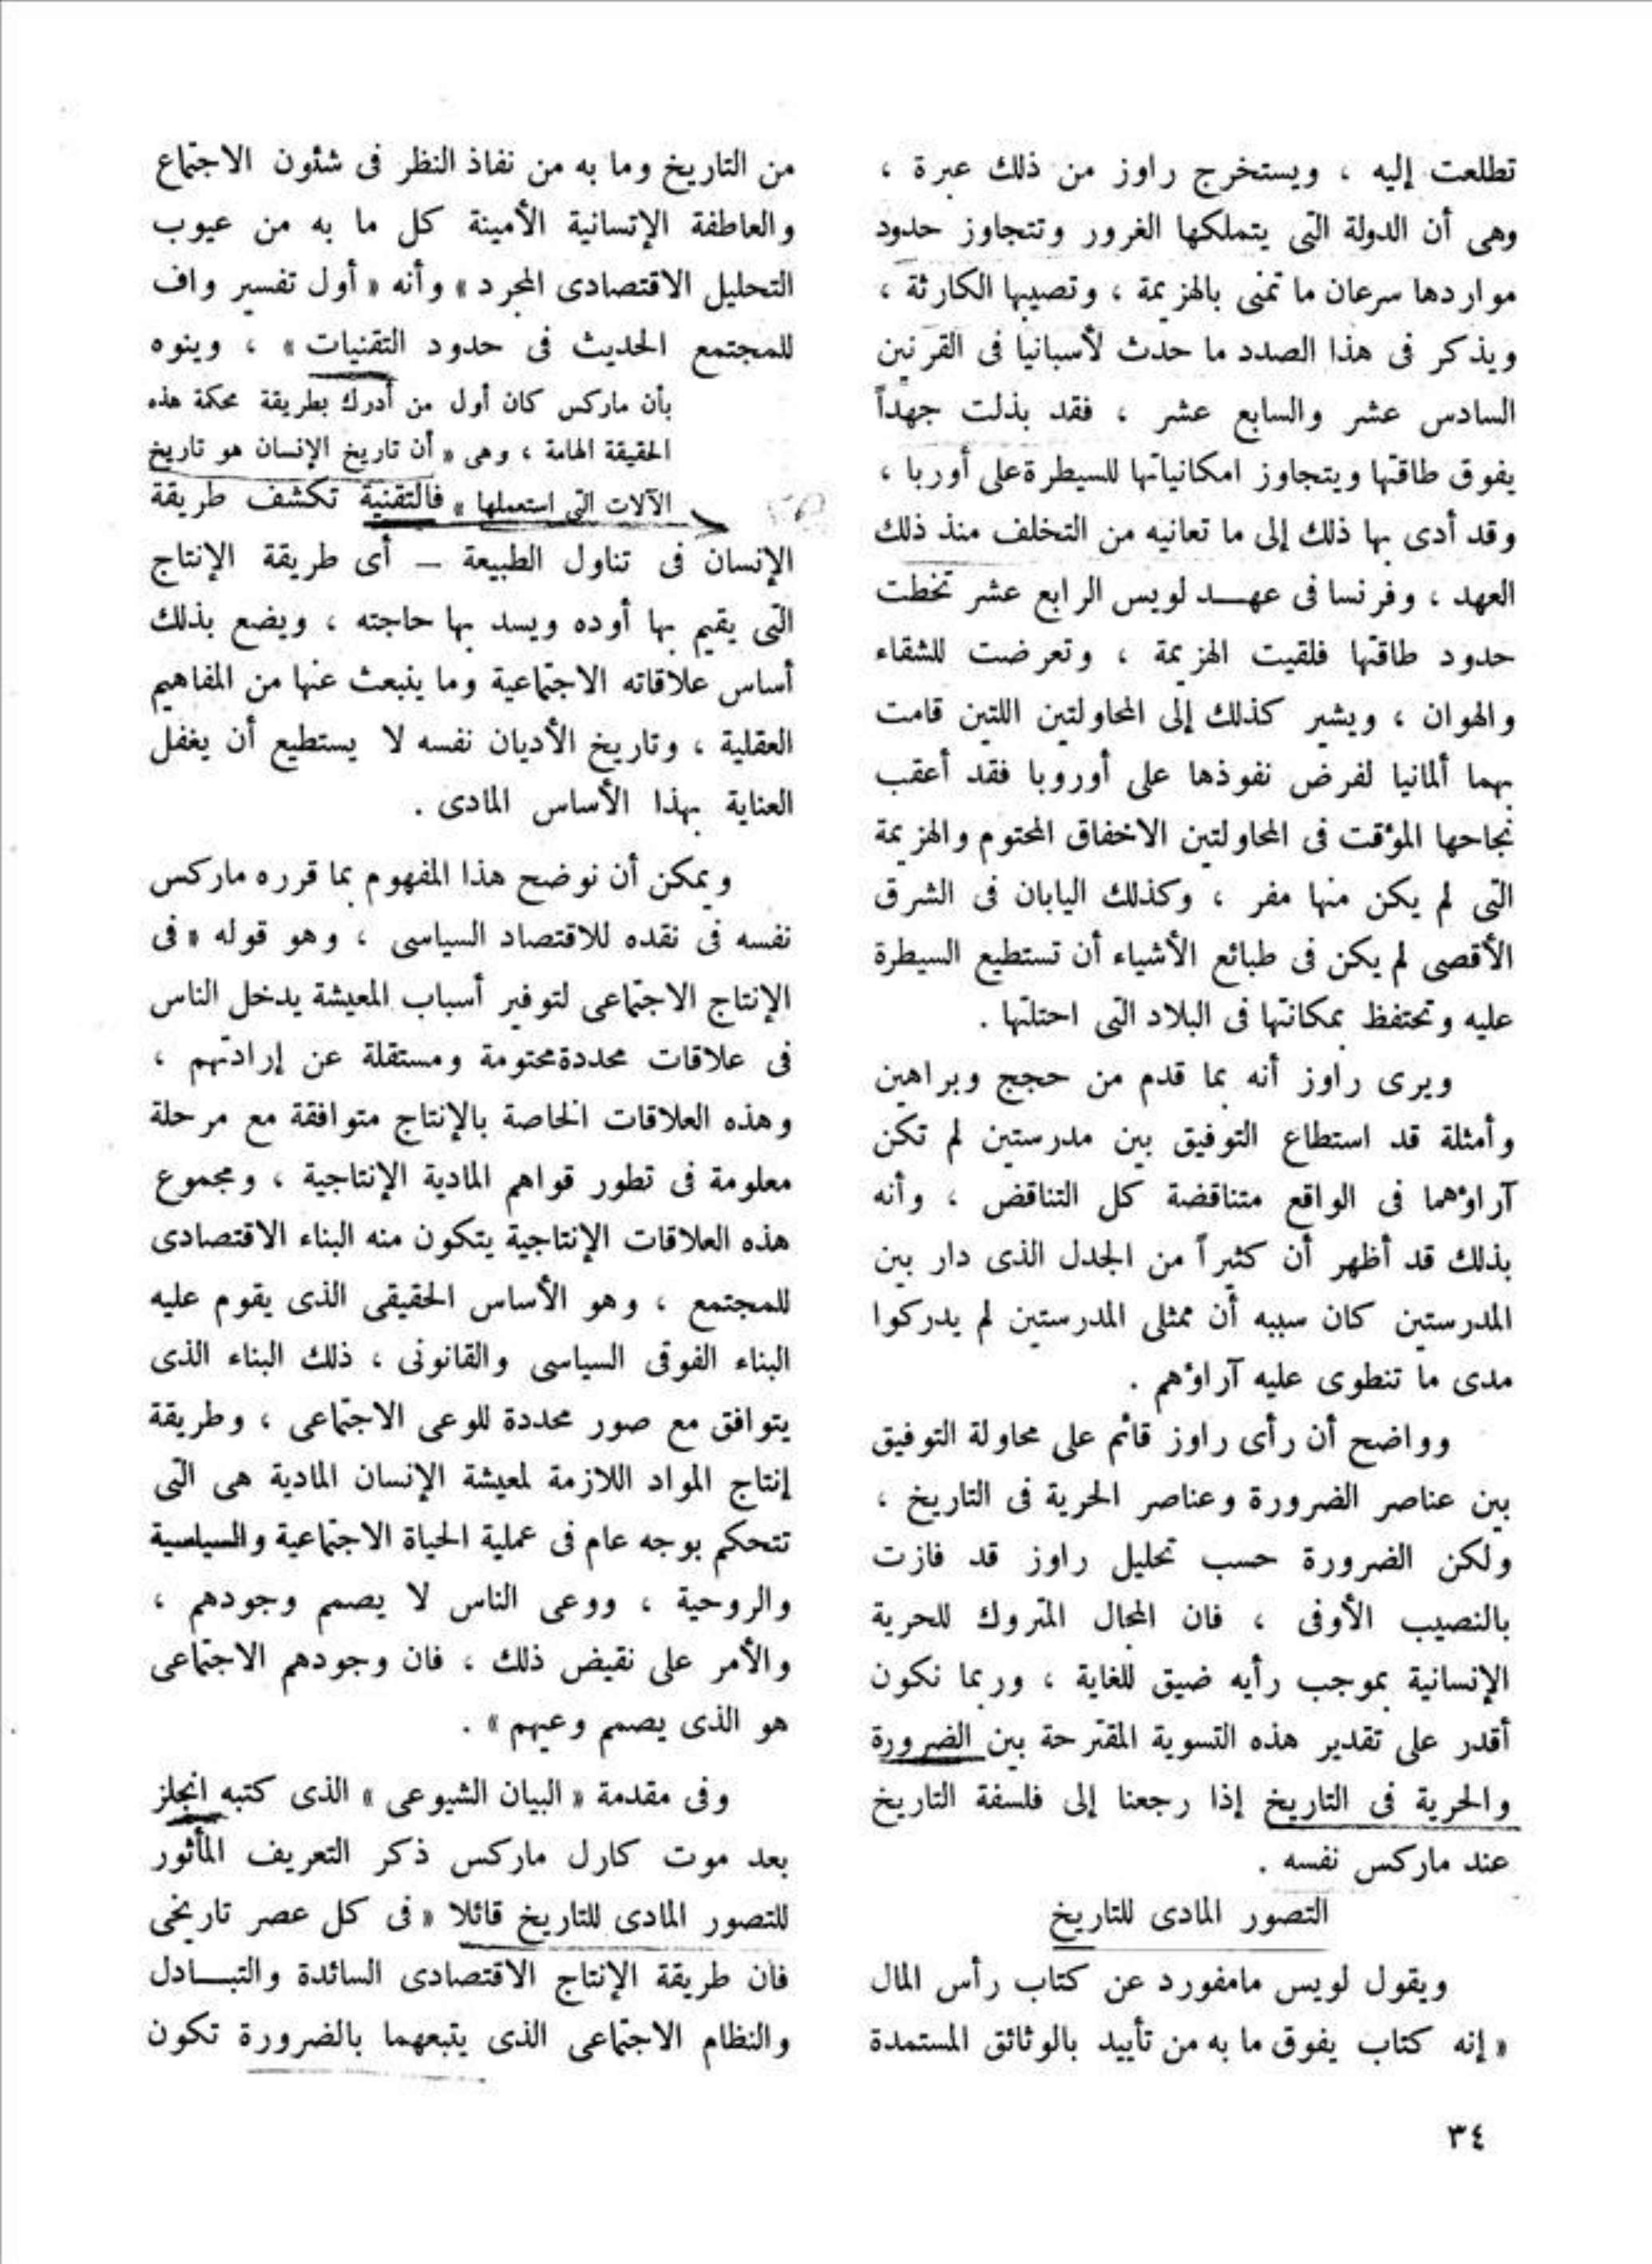 تطلعت إليه ، ويستخرج راوز من ذلك عبرة ،
وهى أن الدولة التى يتملكها الغرور وتتجاوز حدود
مواردها سرعان ما تمنى بالهزيمة ، وتصيبها الكارثة ،
ويذكر فى هذا الصدد ما حدث لأسبانيا فى القرنين
السادس عشر والسابع عشر ، فقد بذلت جهداً
يفوق طاقتها ويتجاوز امكانياتها للسيطرة على أوربا ،
وقد أدى بها ذلك إلى ما تعانيه من التخلف منذ ذلك
العهد ، وفرنسا فى عهــد لويس الرابع عشر تخطت
حدود طاقتها فلقيت الهزيمة ، وتعرضت للشقاء
والهوان ، ويشير كذلك إلى المحاولتين اللتين قامت
بهما ألمانيا لفرض نفوذها على أوروبا فقد أعقب
نجاحها المؤقت فى المحاولتين الاخفاق المحتوم والهزيمة
التى لم يكن منها مفر ، وكذلك اليابان فى الشرق
الأقصى لم يكن فى طبائع الأشياء أن تستطيع السيطرة
عليه وتحتفظ بمكانتها فى البلاد التى احتلتها .
ويرى راوز أنه بما قدم من حجج وبراهين
وأمثلة قد استطاع التوفيق بين مدرستين لم تكن
آراؤهما فى الواقع متناقضة كل التناقض ، وأنه
بذلك قد أظهر أن كثيراً من الجدل الذى دار بين
المدرستين كان سببه أن ممثلى المدرستين لم يدركوا
مدى ما تنطوى عليه آراؤهم .
وواضح أن رأى راوز قائم على محاولة التوفيق
بين عناصر الضرورة وعناصر الحرية فى التاريخ ،
ولكن الضرورة حسب تحليل راوز قد فازت
بالنصيب الأوفى ، فان المجال المتروك للحرية
الإنسانية بموجب رأيه ضيق للغاية ، وربما نكون
أقدر على تقدير هذه التسوية المقترحة بين الضرورة
والحرية فى التاريخ إذا رجعنا إلى فلسفة التاريخ
عند ماركس نفسه .
التصور المادى للتاريخ
ويقول لويس مامفورد عن كتاب رأس المال
« إنه كتاب يفوق ما به من تأييد بالوثائق المستمدة
من التاريخ وما به من نفاذ النظر فى شئون الاجتماع
والعاطفة الإتسانية الأمينة كل ما به من عيوب
التحليل الاقتصادى المجرد » وأنه « أول تفسير واف
للمجتمع الحديث فى حدود التقنيات » ، وينوه
بأن ماركس كان أول من أدرك بطريقة محكمة هذه
الحقيقة الهامة ، وهى « أن تاريخ الإنسان هو تاريخ
الآلات التى استعملها » فالتقنية تكشف طريقة
الإنسان فى تناول الطبيعة – أى طريقة الإنتاج
التى يقيم بها أوده ويسد بها حاجته ، ويضع بذلك
أساس علاقاته الاجتماعية وما ينبعث عنها من المفاهيم
العقلية ، وتاريخ الأديان نفسه لا يستطيع أن يغفل
العناية بهذا الأساس المادى .
ويمكن أن نوضح هذا المفهوم بما قرره ماركس
نفسه فى نقده للاقتصاد السياسى ، وهو قوله « فى
الإنتاج الاجتماعى لتوفير أسباب المعيشة يدخل الناس
فى علاقات محددة محتومة ومستقلة عن إرادتهم ،
وهذه العلاقات الخاصة بالإنتاج متوافقة مع مرحلة
معلومة فى تطور قواهم المادية الإنتاجية ، ومجموع
هذه العلاقات الإنتاجية يتكون منه البناء الاقتصادى
للمجتمع ، وهو الأساس الحقيقى الذى يقوم عليه
البناء الفوقى السياسى والقانونى ، ذلك البناء الذى
يتوافق مع صور محددة للوعى الاجتماعى ، وطريقة
إنتاج المواد اللازمة لمعيشة الإنسان المادية هى التى
تتحكم بوجه عام فى عملية الحياة الاجتماعية والسياسية
والروحية ، ووعى الناس لا يصمم وجودهم ،
والأمر على نقيض ذلك ، فان وجودهم الاجتماعى
هو الذى يصمم وعيهم » .
وفى مقدمة « البيان الشيوعى » الذى كتبه انجلز
بعد موت كارل ماركس ذكر التعريف المأثور
للتصور المادى للتاريخ قائلا « فى كل عصر تاريخى
فان طريقة الإنتاج الاقتصادى السائدة والتبــادل
والنظام الاجتماعى الذى يتبعهما بالضرورة تكون
٣٤